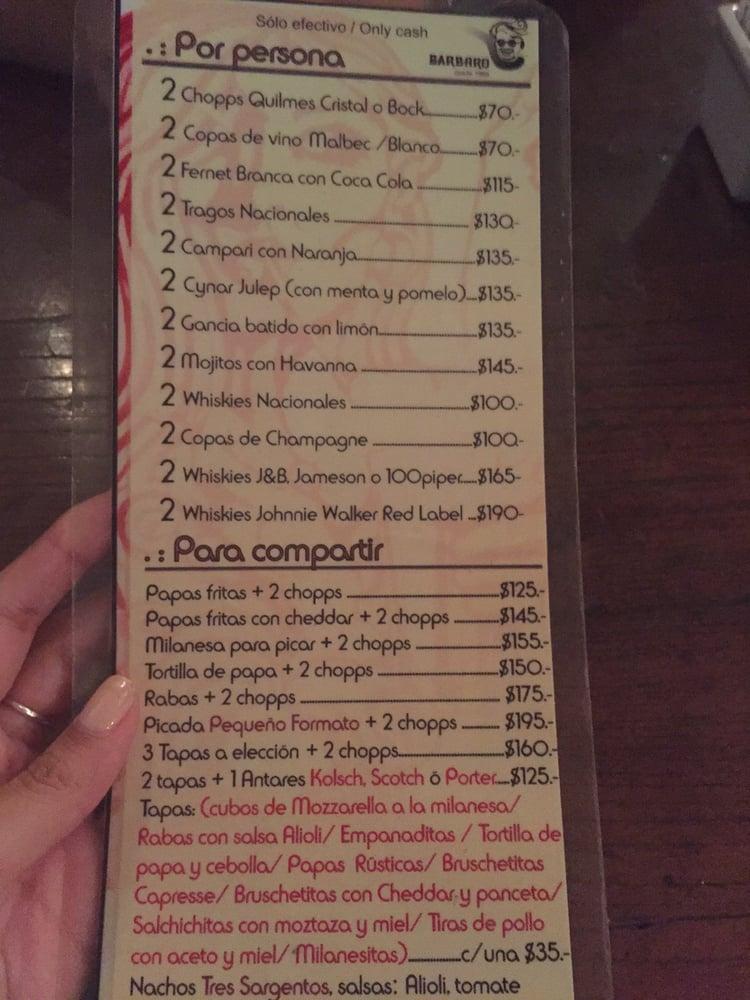 Sólo efectivo / Only cash
.: Por persona
BARBARO
2 Chopps Quilmes Cristal o Bock..........$70.-
2 Copas de vino Malbec /Blanco..........$70.-
2 Fernet Branca con Coca Cola ..........$115-
2 Tragos Nacionales ..........$130-
2 Campari con Naranja..........$135.-
2 Cynar Julep (con menta y pomelo)...$135.-
2 Gancia batido con limón..........$135.-
2 Mojitos con Havanna ..........$145.-
2 Whiskies Nacionales ..........$100.-
2 Copas de Champagne ..........$100-
2 Whiskies J&B, Jameson o 100piper.....$165-
2 Whiskies Johnnie Walker Red Label ..$190-
.: Para compartir
Papas fritas + 2 chopps ..........$125.-
Papas fritas con cheddar + 2 chopps ..........$145.-
Milanesa para picar + 2 chopps ..........$155.-
Tortilla de papa + 2 chopps ..........$150.-
Rabas + 2 chopps .......... $175.-
Picada Pequeño Formato + 2 chopps .......... $195.-
3 Tapas a elección + 2 chopps..........$160.-
2 tapas + 1 Antares Kolsch, Scotch ó Porter....$125.-
Tapas: (cubos de Mozzarella a la milanesa/
Rabas con salsa Alioli/ Empanaditas / Tortilla de
papa y cebolla/ Papas Rústicas/ Bruschetitas
Capresse/ Bruschetitas con Cheddar y panceta/
Salchichitas con moztaza y miel/ Tiras de pollo
con aceto y miel/ Milanesitas)..........c/una $35.-
Nachos Tres Sargentos, salsas: Alioli, tomate